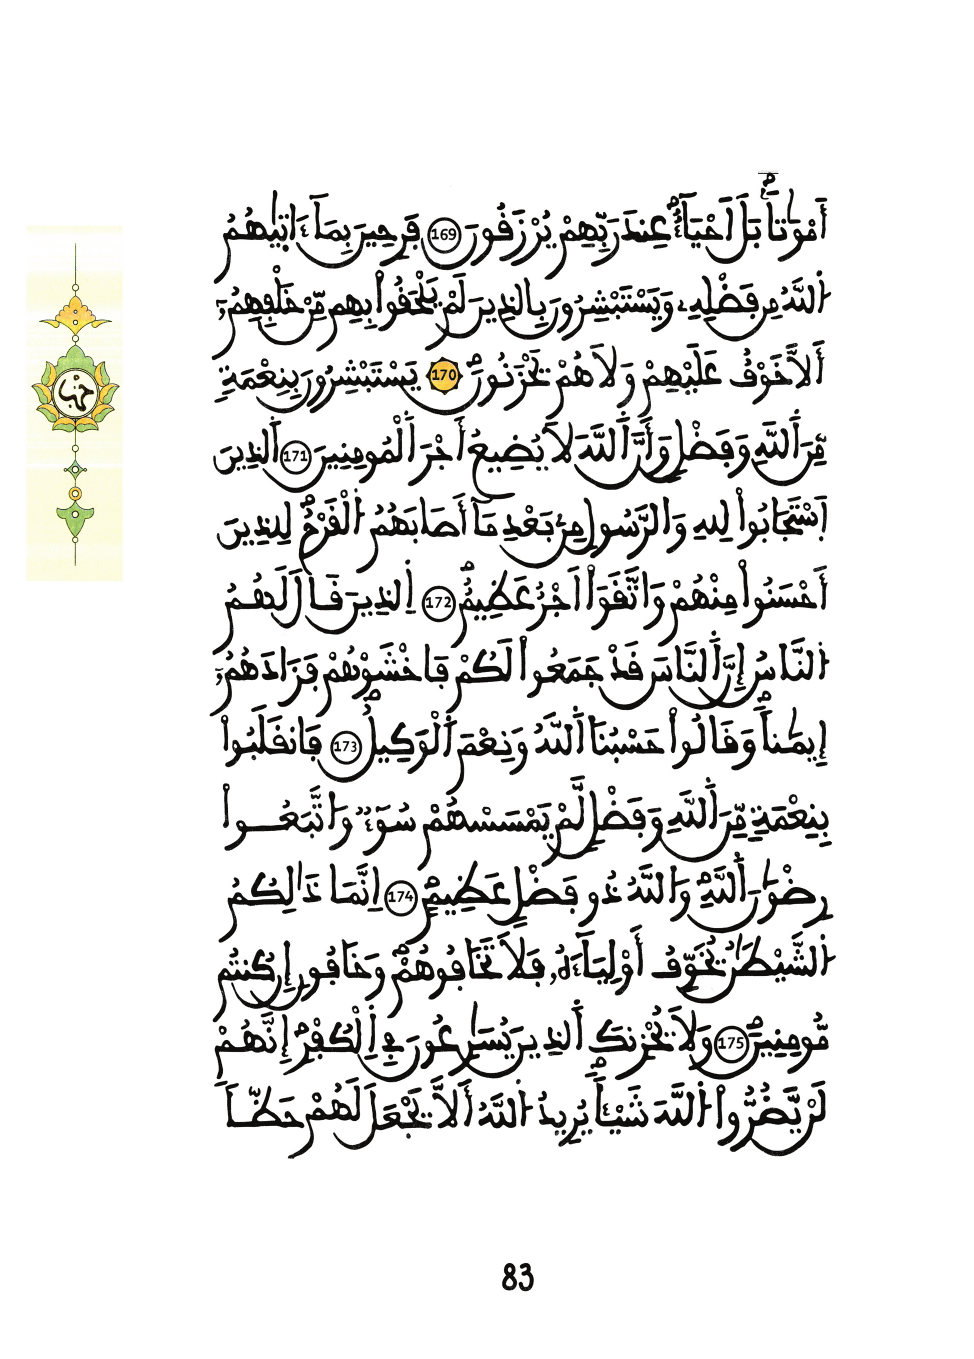 أَمْوَٰتاًۢ بَلَ اَحْيَآءٌ عِندَ رَبِّهِمْ يُرْزَقُونَ 169 فَرِحِينَ بِمَآ ءَات۪يٰهُمُ
اُ۬للَّهُ مِن فَضْلِهِۦ وَيَسْتَبْشِرُونَ بِالذِينَ لَمْ يَلْحَقُواْ بِهِم مِّنْ خَلْفِهِمُۥٓ
أَلَّا خَوْفٌ عَلَيْهِمْ وَلَا هُمْ يَحْزَنُونَۖ 170 يَسْتَبْشِرُونَ بِنِعْمَةٖ
مِّنَ اَ۬للَّهِ وَفَضْلٖ وَأَنَّ اَ۬للَّهَ لَا يُضِيعُ أَجْرَ اَ۬لْمُومِنِينَ 171 اَ۬لذِينَ
اَ۪سْتَجَابُواْ لِلهِ وَالرَّسُولِ مِنۢ بَعْدِ مَآ أَصَابَهُمُ اُ۬لْقَرْحُۖ لِلذِينَ
أَحْسَنُواْ مِنْهُمْ وَاتَّقَوَاْ اَجْرٌ عَظِيمٌۖ 172 اِ۬لذِينَ قَالَ لَهُمُ
اُ۬لنَّاسُ إِنَّ اَ۬لنَّاسَ قَدْ جَمَعُواْ لَكُمْ فَاخْشَوْهُمْ فَزَادَهُمُۥٓ
إِيمَٰناًۖ وَقَالُواْ حَسْبُنَا اَ۬للَّهُ وَنِعْمَ اَ۬لْوَكِيلُۖ 173 فَانقَلَبُواْ
بِنِعْمَةٖ مِّنَ اَ۬للَّهِ وَفَضْلٖ لَّمْ يَمْسَسْهُمْ سُوٓءٞ وَاتَّبَعُواْ
رِضْوَٰنَ اَ۬للَّهِۖ وَاللَّهُ ذُو فَضْلٍ عَظِيمٍۖ 174 اِنَّمَا ذَٰلِكُمُ
اُ۬لشَّيْطَٰنُ يُخَوِّفُ أَوْلِيَآءَهُۥ فَلَا تَخَافُوهُمْۖ وَخَافُونِ إِن كُنتُم
مُّومِنِينَۖ 175 وَلَا يُحْزِنكَ اَ۬لذِينَ يُسَٰرِعُونَ فِے اِ۬لْكُفْرِۖ إِنَّهُمْ
لَنْ يَّضُرُّواْ اُ۬للَّهَ شَيْـٔاًۖ يُرِيدُ اُ۬للَّهُ أَلَّا يَجْعَلَ لَهُمْ حَظّاٗ
حزب
83